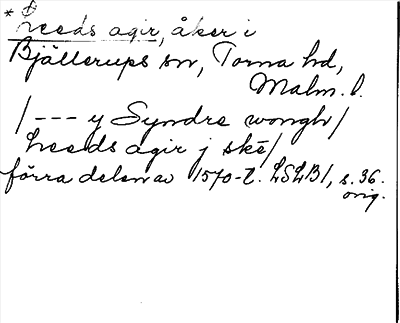 * Leeds agir, åker i
Bjällerups sn, Torna hd,
Malm. l.
/--- y Syndre wongh/
Leeds agir j skē/
förra delen av 1570-t. LSLB1, s. 36.
orig.